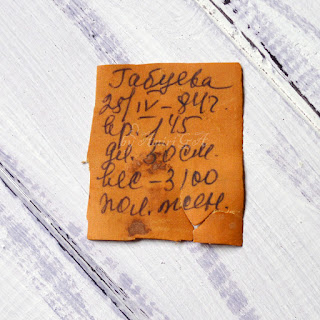 Габуева
25/IV-84г
вр. 1 45
дл. 50 см.
вес - 3100
пол. жен.